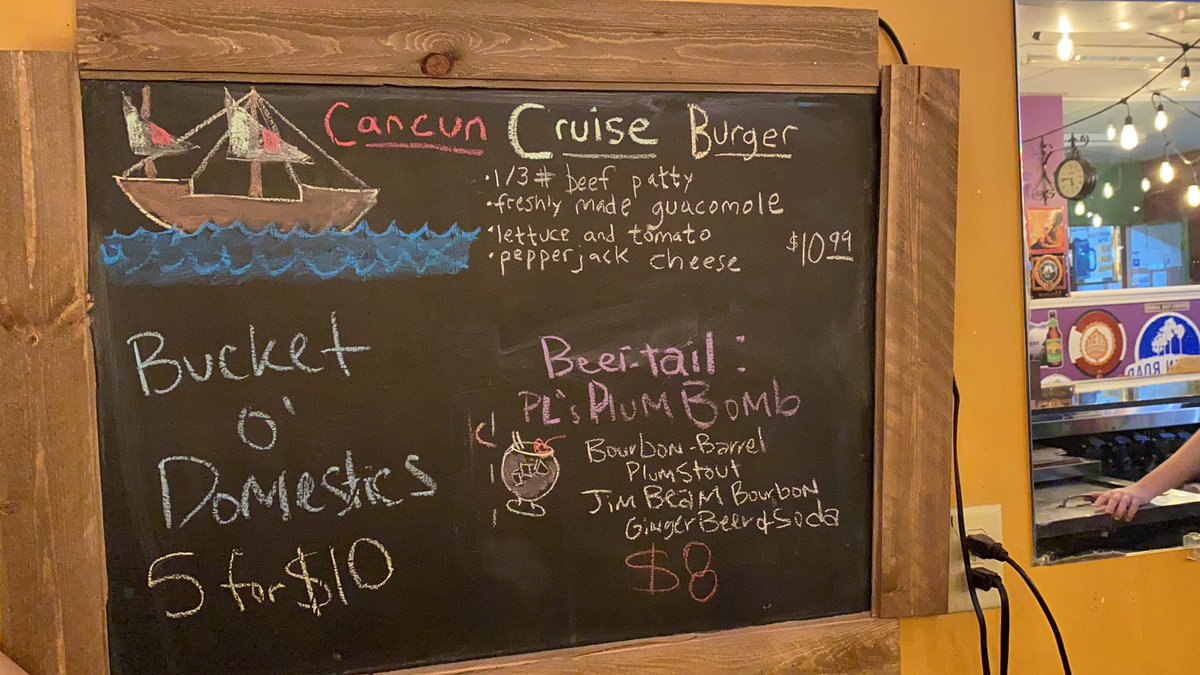 Cancun Cruise Burger
• 1/3# beef patty
• freshly made guacomole
• lettuce and tomato
• pepperjack cheese
$10.99
Bucket
o'
Domestics
5 for $10
Beer-tail:
PL's Plum Bomb
Bourbon-Barrel
Plum Stout
Jim Beam Bourbon
Ginger Beer & Soda
$8
ROAD